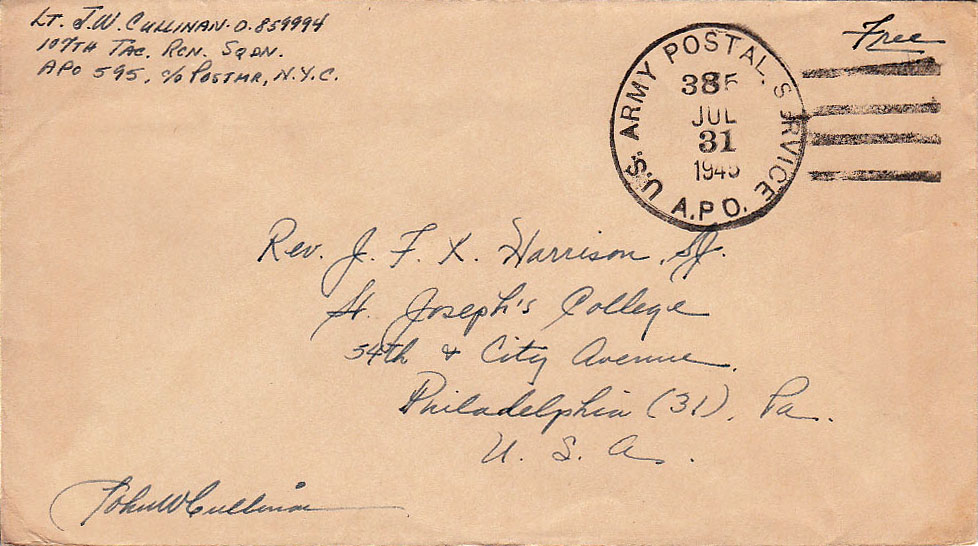 Lt. J.W. Cullinan. O.859994
107th Tac. Rcn. Sqdn.
APO 595, c/o Postmr, N.Y.C.
Free
U.S. ARMY POSTAL S RVICE
JUL
31
1945
A.P.O.
Rev. J. F. X. Harrison, S.J.
St. Joseph's College
54th & City Avenue.
Philadelphia (31), Pa.
U. S. A.
John W Cullinan